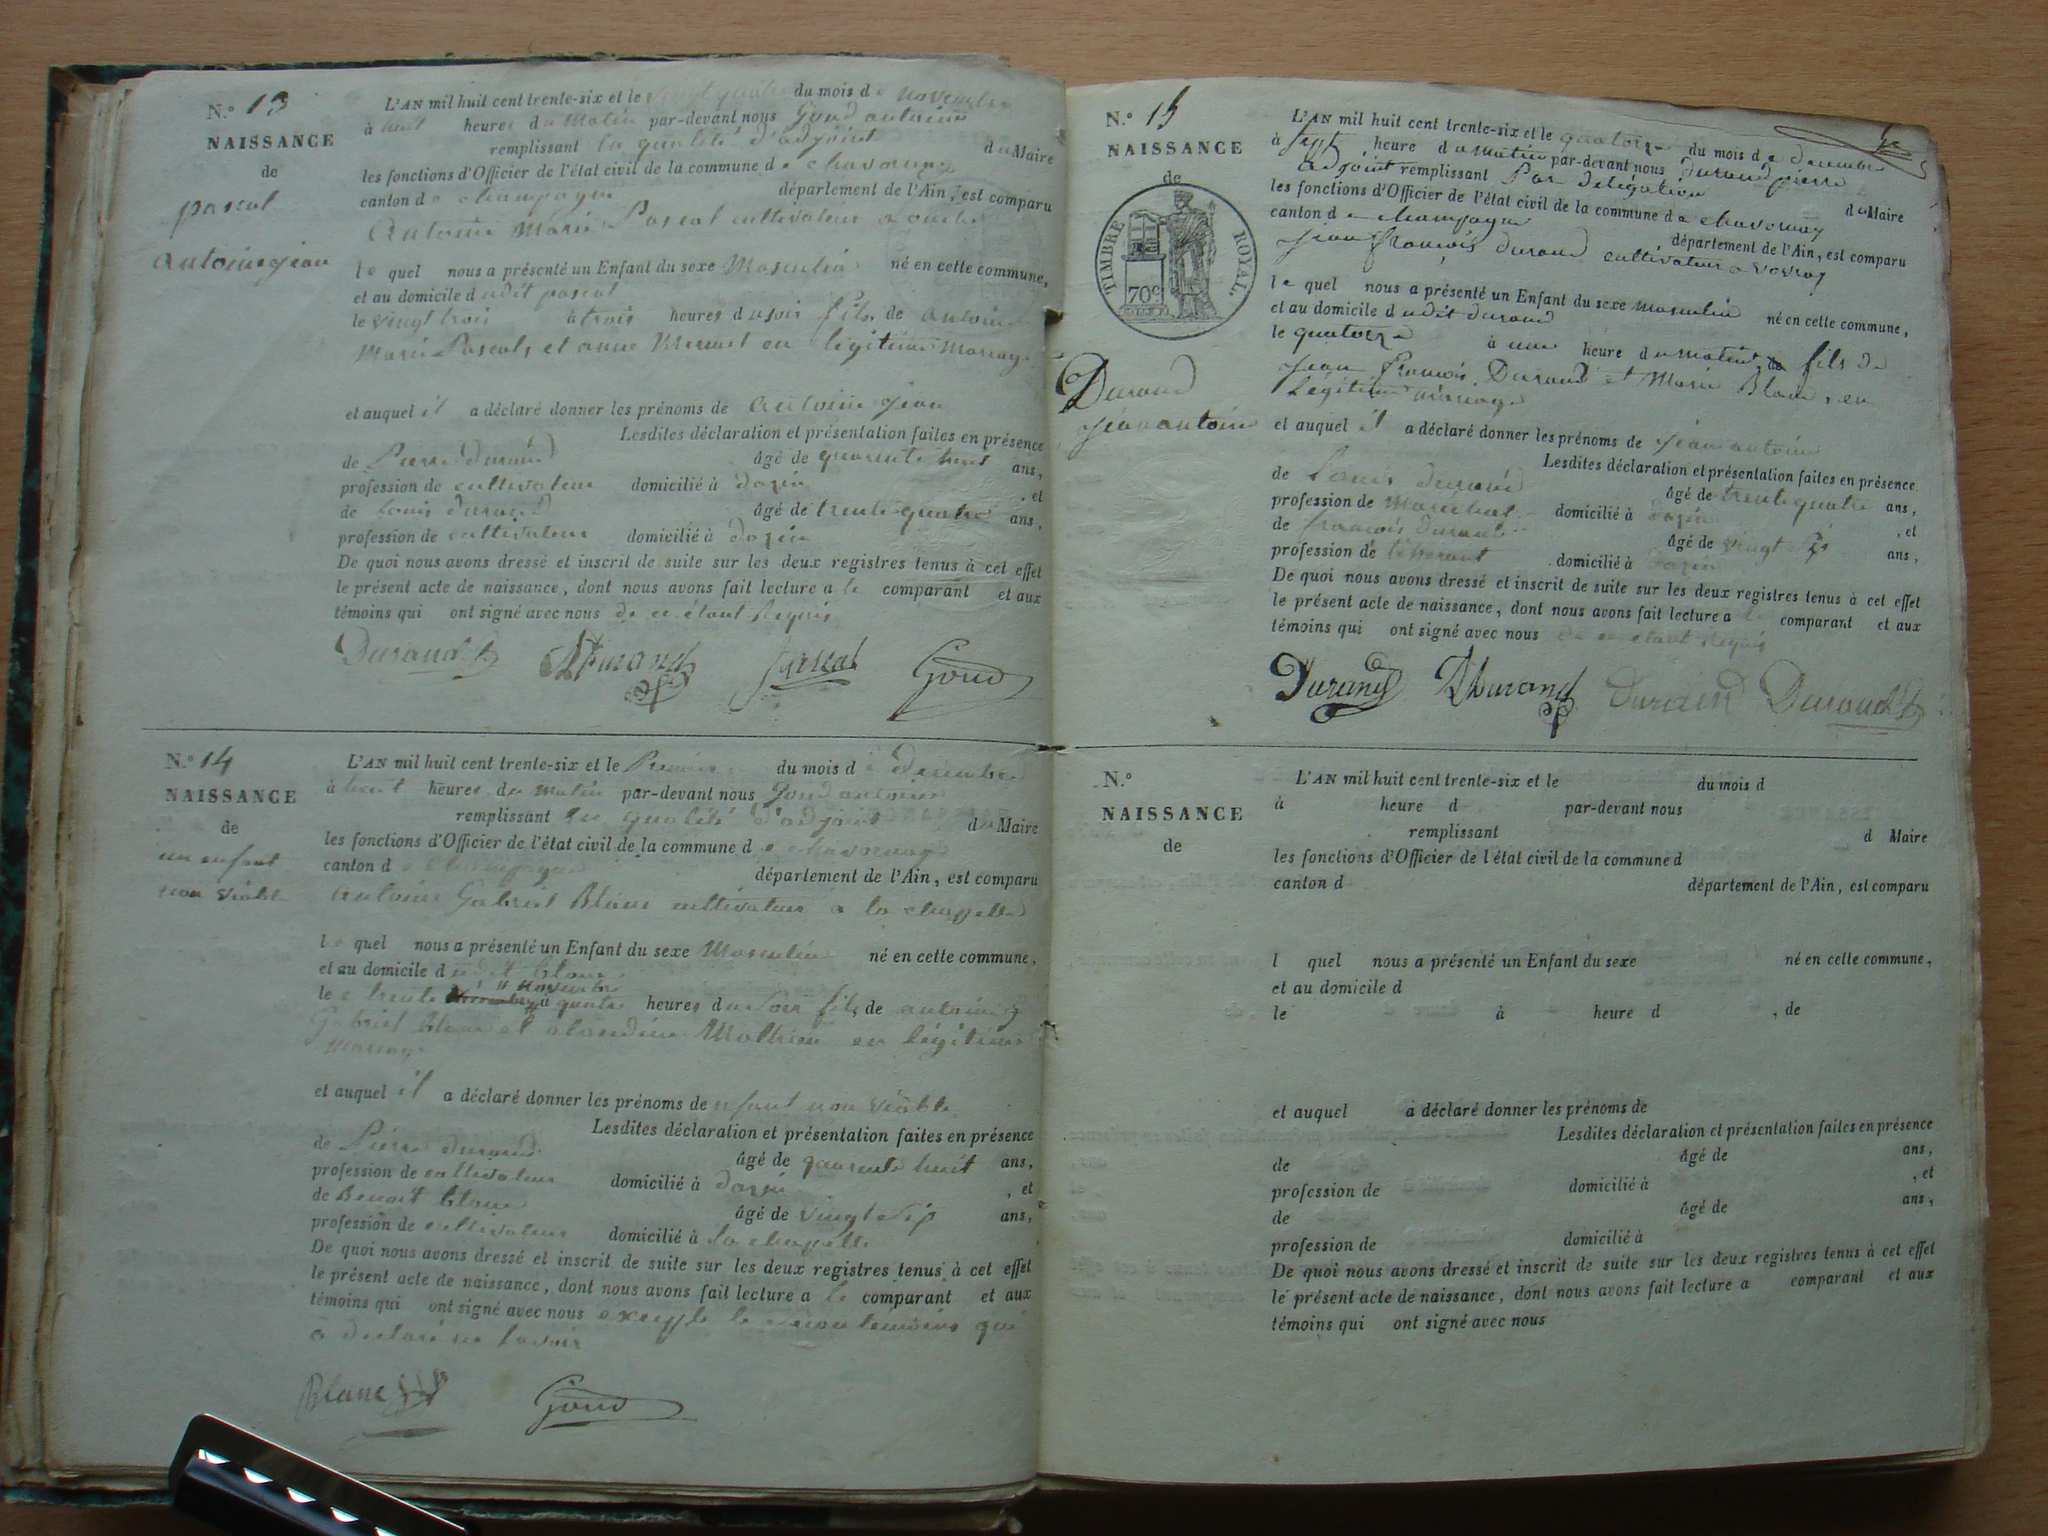 N.° 13
NAISSANCE
de
pascal
antoine jean
L'AN mil huit cent trente-six et le vingt quatre du mois de novembre
à huit heures du matin par-devant nous Goud antoine
remplissant la qualité d'adjoint du Maire
les fonctions d'Officier de l'état civil de la commune de chavornay
canton de champagne département de l'Ain, est comparu
Antoine Marie Pascal cultivateur a
le quel nous a présenté un Enfant du sexe Masculin né en cette commune,
et au domicile dudit pascal
le vingt trois à trois heures du soir fils de antoine
Marie Pascal, et anne en légitime Mariage
et auquel il a déclaré donner les prénoms de antoine jean
Lesdites déclaration et présentation faites en présence
de Pierre durand âgé de quarente huit ans,
profession de cultivateur domicilié à dazin , et
de Louis durand âgé de trente quatre ans,
profession de cultivateur domicilié à dazin
De quoi nous avons dressé et inscrit de suite sur les deux registres tenus à cet effet
le présent acte de naissance, dont nous avons fait lecture a le comparant et aux
témoins qui ont signé avec nous de ce étant Requis
Durand Durand pascal Goud
N.° 14
NAISSANCE
de
un enfant
non viable
L'AN mil huit cent trente-six et le Premier du mois de Decembre
à huit heures du matin par-devant nous Goud antoine
remplissant la qualité d'adjoint du Maire
les fonctions d'Officier de l'état civil de la commune de chavornay
canton de champagne département de l'Ain, est comparu
Antoine Gabriel Blanc cultivateur a la chapelle
le quel nous a présenté un Enfant du sexe Masculin né en cette commune,
et au domicile dudit blanc
le trente novembre à quatre heures du soir fils de antoine
Gabriel blanc et claudine Mathieu en légitime
mariage
et auquel il a déclaré donner les prénoms de enfant non viable
Lesdites déclaration et présentation faites en présence
de Pierre durand âgé de quarente huit ans,
profession de cultivateur domicilié à dazin , et
de Benoit blanc âgé de vingt six ans,
profession de cultivateur domicilié à la chapelle
De quoi nous avons dressé et inscrit de suite sur les deux registres tenus à cet effet
le présent acte de naissance, dont nous avons fait lecture a le comparant et aux
témoins qui ont signé avec nous excepté le temoins qui
a declaré ne savoir
Blanc Goud
N.° 15
NAISSANCE
de
TIMBRE ROYAL.
70c
Durand
jean antoine
L'AN mil huit cent trente-six et le quatorze du mois de decembre
à sept heure du matin par-devant nous durand pierre
adjoint remplissant Par délégation du Maire
les fonctions d'Officier de l'état civil de la commune de chavornay
canton de champagne département de l'Ain, est comparu
jean françois durand cultivateur a vovray
le quel nous a présenté un Enfant du sexe masculin né en cette commune,
et au domicile dudit durand
le quatorze à une heure du matin fils de
jean françois Durand et Marie Blanc, en
Légitime mariage
et auquel il a déclaré donner les prénoms de jean antoine
Lesdites déclaration et présentation faites en présence
de Louis durand âgé de trente quatre ans,
profession de Maréchal domicilié à dazin , et
de françois durand âgé de vingt six ans,
profession de tisserant domicilié à dazin
De quoi nous avons dressé et inscrit de suite sur les deux registres tenus à cet effet
le présent acte de naissance, dont nous avons fait lecture a le comparant et aux
témoins qui ont signé avec nous de ce étant Requis
Durand Durand Durand Durand
N.°
NAISSANCE
de
L'AN mil huit cent trente-six et le du mois d
à heure d par-devant nous
remplissant d Maire
les fonctions d'Officier de l'état civil de la commune d
canton d département de l'Ain, est comparu
l quel nous a présenté un Enfant du sexe né en cette commune,
et au domicile d
le à heure d , de
et auquel a déclaré donner les prénoms de
Lesdites déclaration et présentation faites en présence
de âgé de ans,
profession de domicilié à , et
de âgé de ans,
profession de domicilié à
De quoi nous avons dressé et inscrit de suite sur les deux registres tenus à cet effet
le présent acte de naissance, dont nous avons fait lecture a comparant et aux
témoins qui ont signé avec nous